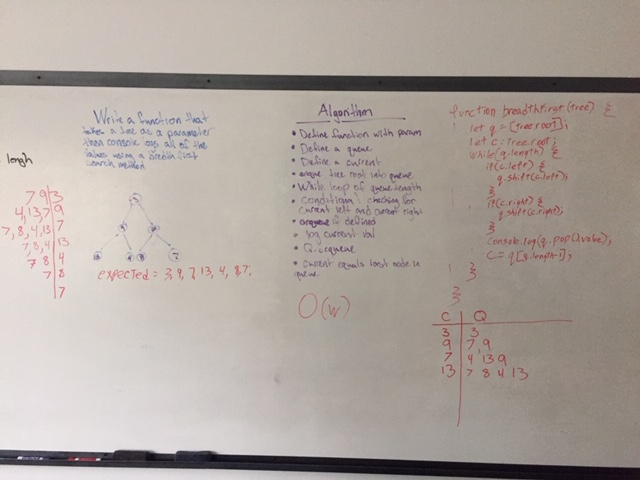 Write a function that
takes a tree as a parameter
then console logs all of the
values using a breadth first
search method
length
7 9 3
4, 13, 7 9
7, 8, 4, 13 7
7, 8, 4 13
7 8 4
7 8
7
expected = 3, 9, 7, 13, 4, 8, 7,
Algorithm
• Define function with param
• Define a queue
• Define a current
• enqueue tree root into queue
• While loop of queue length
• conditional checking for
current left and current right
enqueue if defined
• log current val
• Q.dequeue
• current equals last node in
queue.
O(w)
function breadthfirst(tree) {
let q = [tree.root];
let c = tree.root;
while(q.length) {
if(c.left) {
q.shift(c.left);
}
if(c.right) {
q.shift(c.right);
}
console.log(q.pop().value);
c = q[q.length-1];
}
}
C Q
3 3
9 7, 9
7 4 13 9
13 7 8 4 13